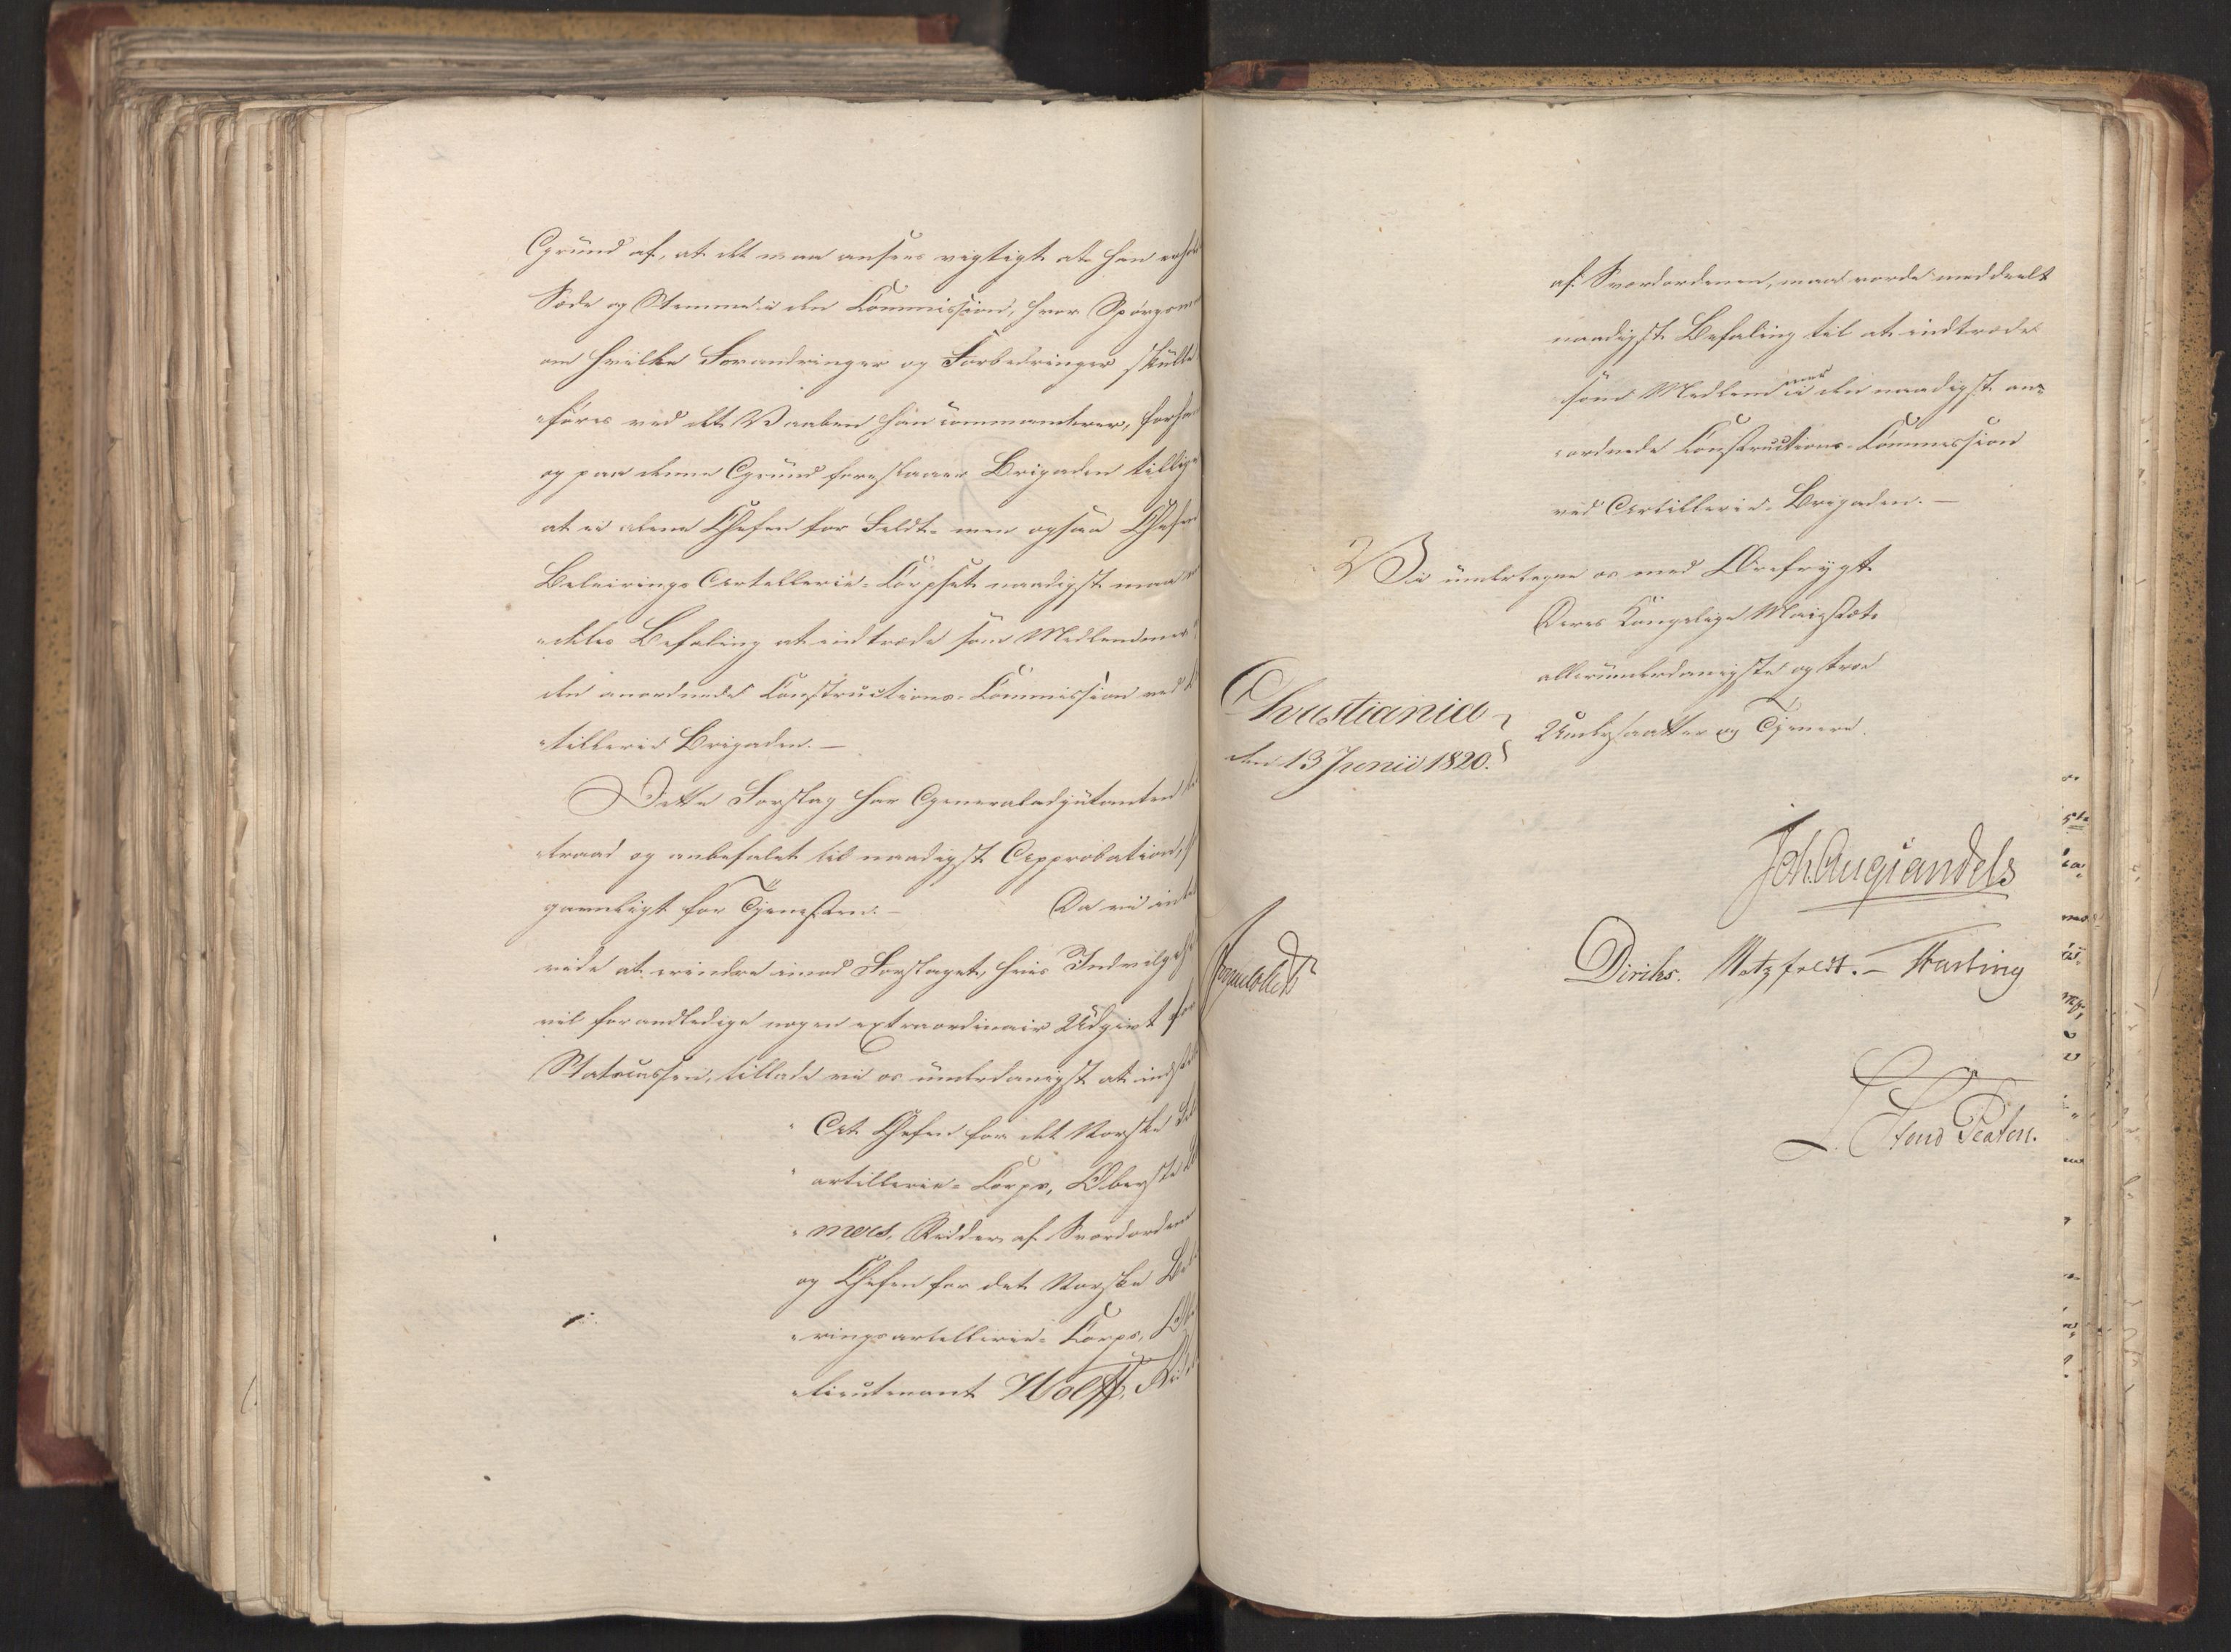 Grund af, at det maa ansees vigtigt at han erho
Sæde og Stemme i den Commission, hvor Spørgsm
om hvilke Forandringer og Forbedringer skulle
føres ved det Vaaben han commanderer, forha
og paa denne Grund foreslaaer Brigaden tillige
at ei alene Chefen for Feldt- men ogsaa Chefen
Beleirings Artillerie-Corpset naadigst maa
deles Befaling at indtræde som Medlemmer
den anordnede Constructions-Commission ved A
tillerie Brigaden. —
Dette Forslag har Generaladjutanten
traad og anbefalet til naadigst Approbation,
gavnligt for Tjenesten. — Da vi intet
vide at erindre imod Forslaget, hvis Indvilge
vil foranledige nogen extraordinair Udgivt for
Statscassen, tillade vi os underdanigst at inds
At Chefen for det Norske Fel
artillerie-Corps, Oberste
mers, Ridder af Sværdordenen
og Chefen for det Norske Bel
eringsartillerie-Corps, Ob
lieutenant Wolff, Rid
af Sværdordenen, maa vorde meddeelt
naadigst Befaling til at indtræde
som Medlemmer i den naadigst an=
ordnede Constructions-Commission
ved Artillerie-Brigaden. —
Vi undertegne os med Ærefrygt
Deres Kongelige Majestæts
allerunderdanigste og troe
Christiania
Undersaatter og Tjenere.
den 13 Junii 1820.
Joh. Aug Sandels
Diriks. Motzfeldt. — Fasting